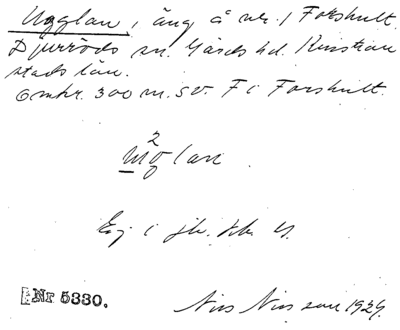 Ugglan, äng å nr. 1 Forshult
Djurröds sn. Gärds hd. Kristian
stads län.
Omkr. 300 m. sv. F i Forshult.
2
uglan
Eg. i
Nr 5330.
Nils Nilsson 1929.